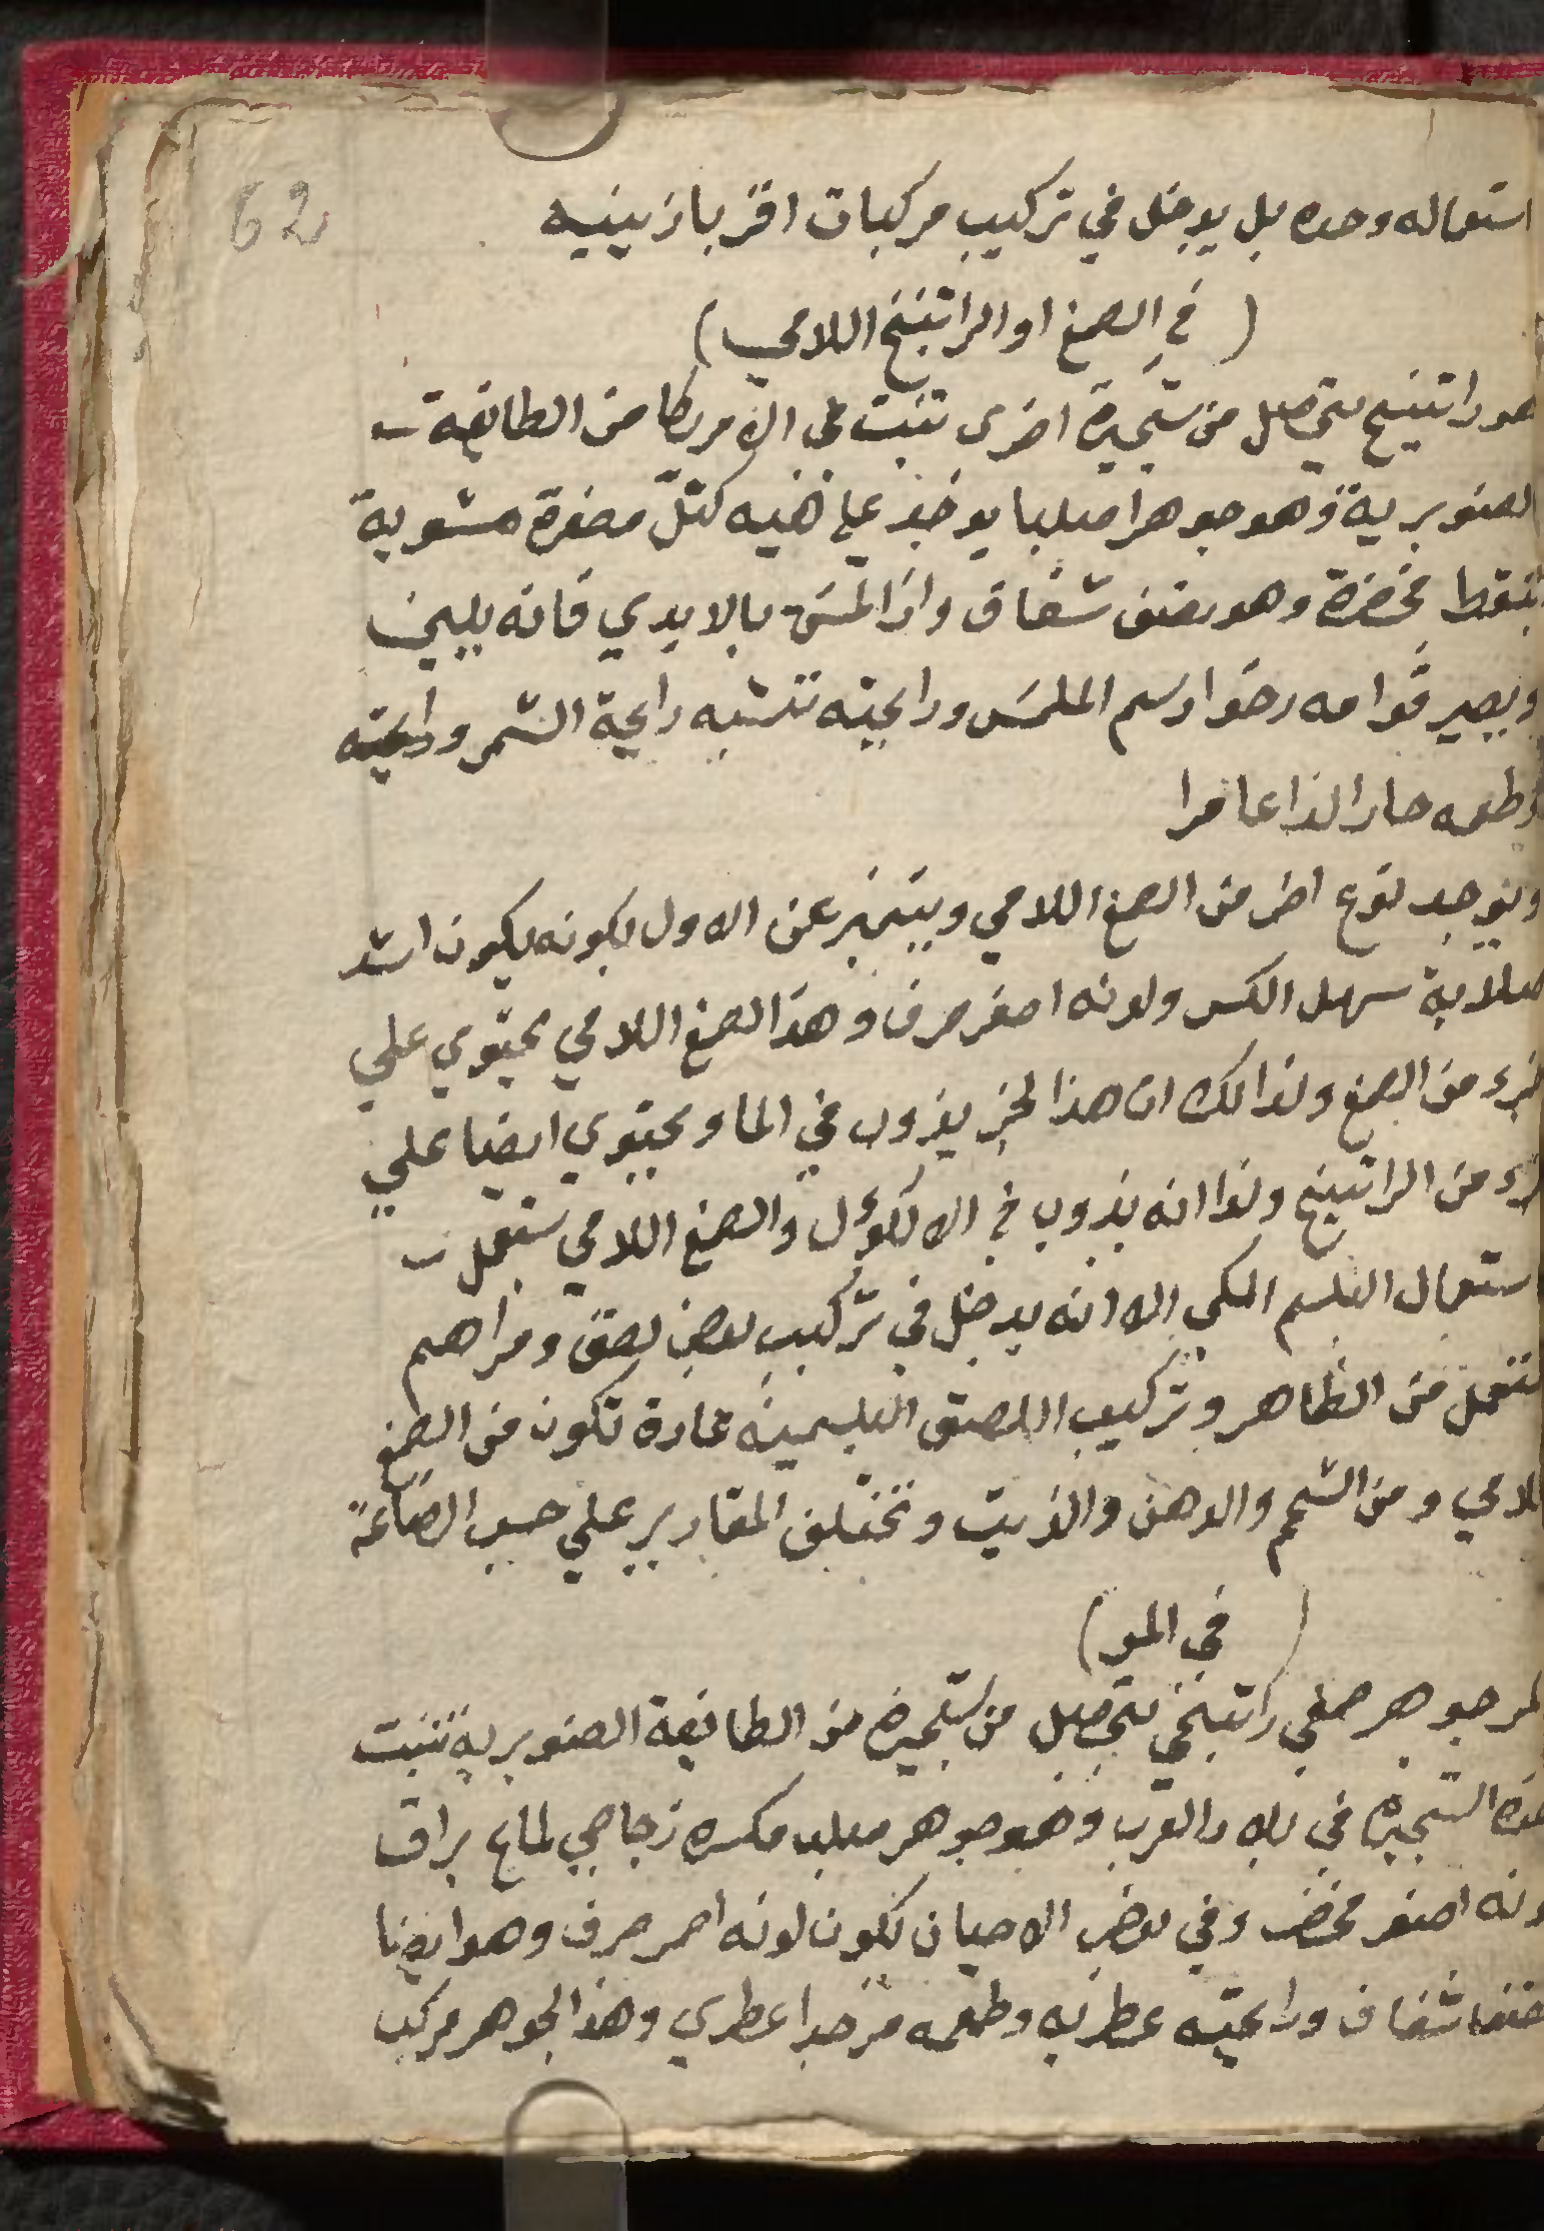 62
استعماله وحده بل يدخل في تركيب مركبات اقربازينيه
( في الصمغ او الراتينج اللامي )
هو راتينج يتحصل من شجيرة اخرى تنبت في الامريكا من الطايفة
الصنوبرية وهو جوهرا صلبا يوخذ على هيه كتل مصفرة مشوبة
بنقط مخضرة وهو نصف شفاف واذا لمس بالايدي فانه يلين
ويصير قوامه رخوا دسم الملمس ورايحته تشبه رايحة الشمر ورايحته
وطعمه حارا لذاعا مرا
ويوجد نوع اخر من الصمغ اللامي ويتميز عن الاول بكونه يكون اشد
صلابة سهل الكسر ولونه اصفر صرف وهذا الصمغ اللامي يحتوي علي
جزء من الصمغ ولذالك ان هذا الجز يذوب في الما ويحتوي ايضا علي
جزء من الراتينج ولذا انه يذوب في الالكؤل والصمغ اللامي يستعمل
استعمال البلسم المكي الا انه يدخل في تركيب بعض لصق ومراهم
تستعمل من الظاهر وتركيب اللصق البلسمية عادة تكون من الصمغ
اللامي ومن الشحم والدهن والزيت وتختلف المقادير علي حسب الصناعة
( في المر )
المر جوهر صمغي راتينجي يتحصل من شجيرة من الطايفة الصنوبرية تنبت
هذه الشجيرة في بلاد العرب وهو جوهر صلب مكسره زجاجي لماع براق
لونه اصفر مخضر وفي بعض الاحيان يكون لونه احمر صرف وهو ايضا
نصف شفاف ورايحته عطرية وطعمه مر جدا عطري وهذا الجوهر مركب